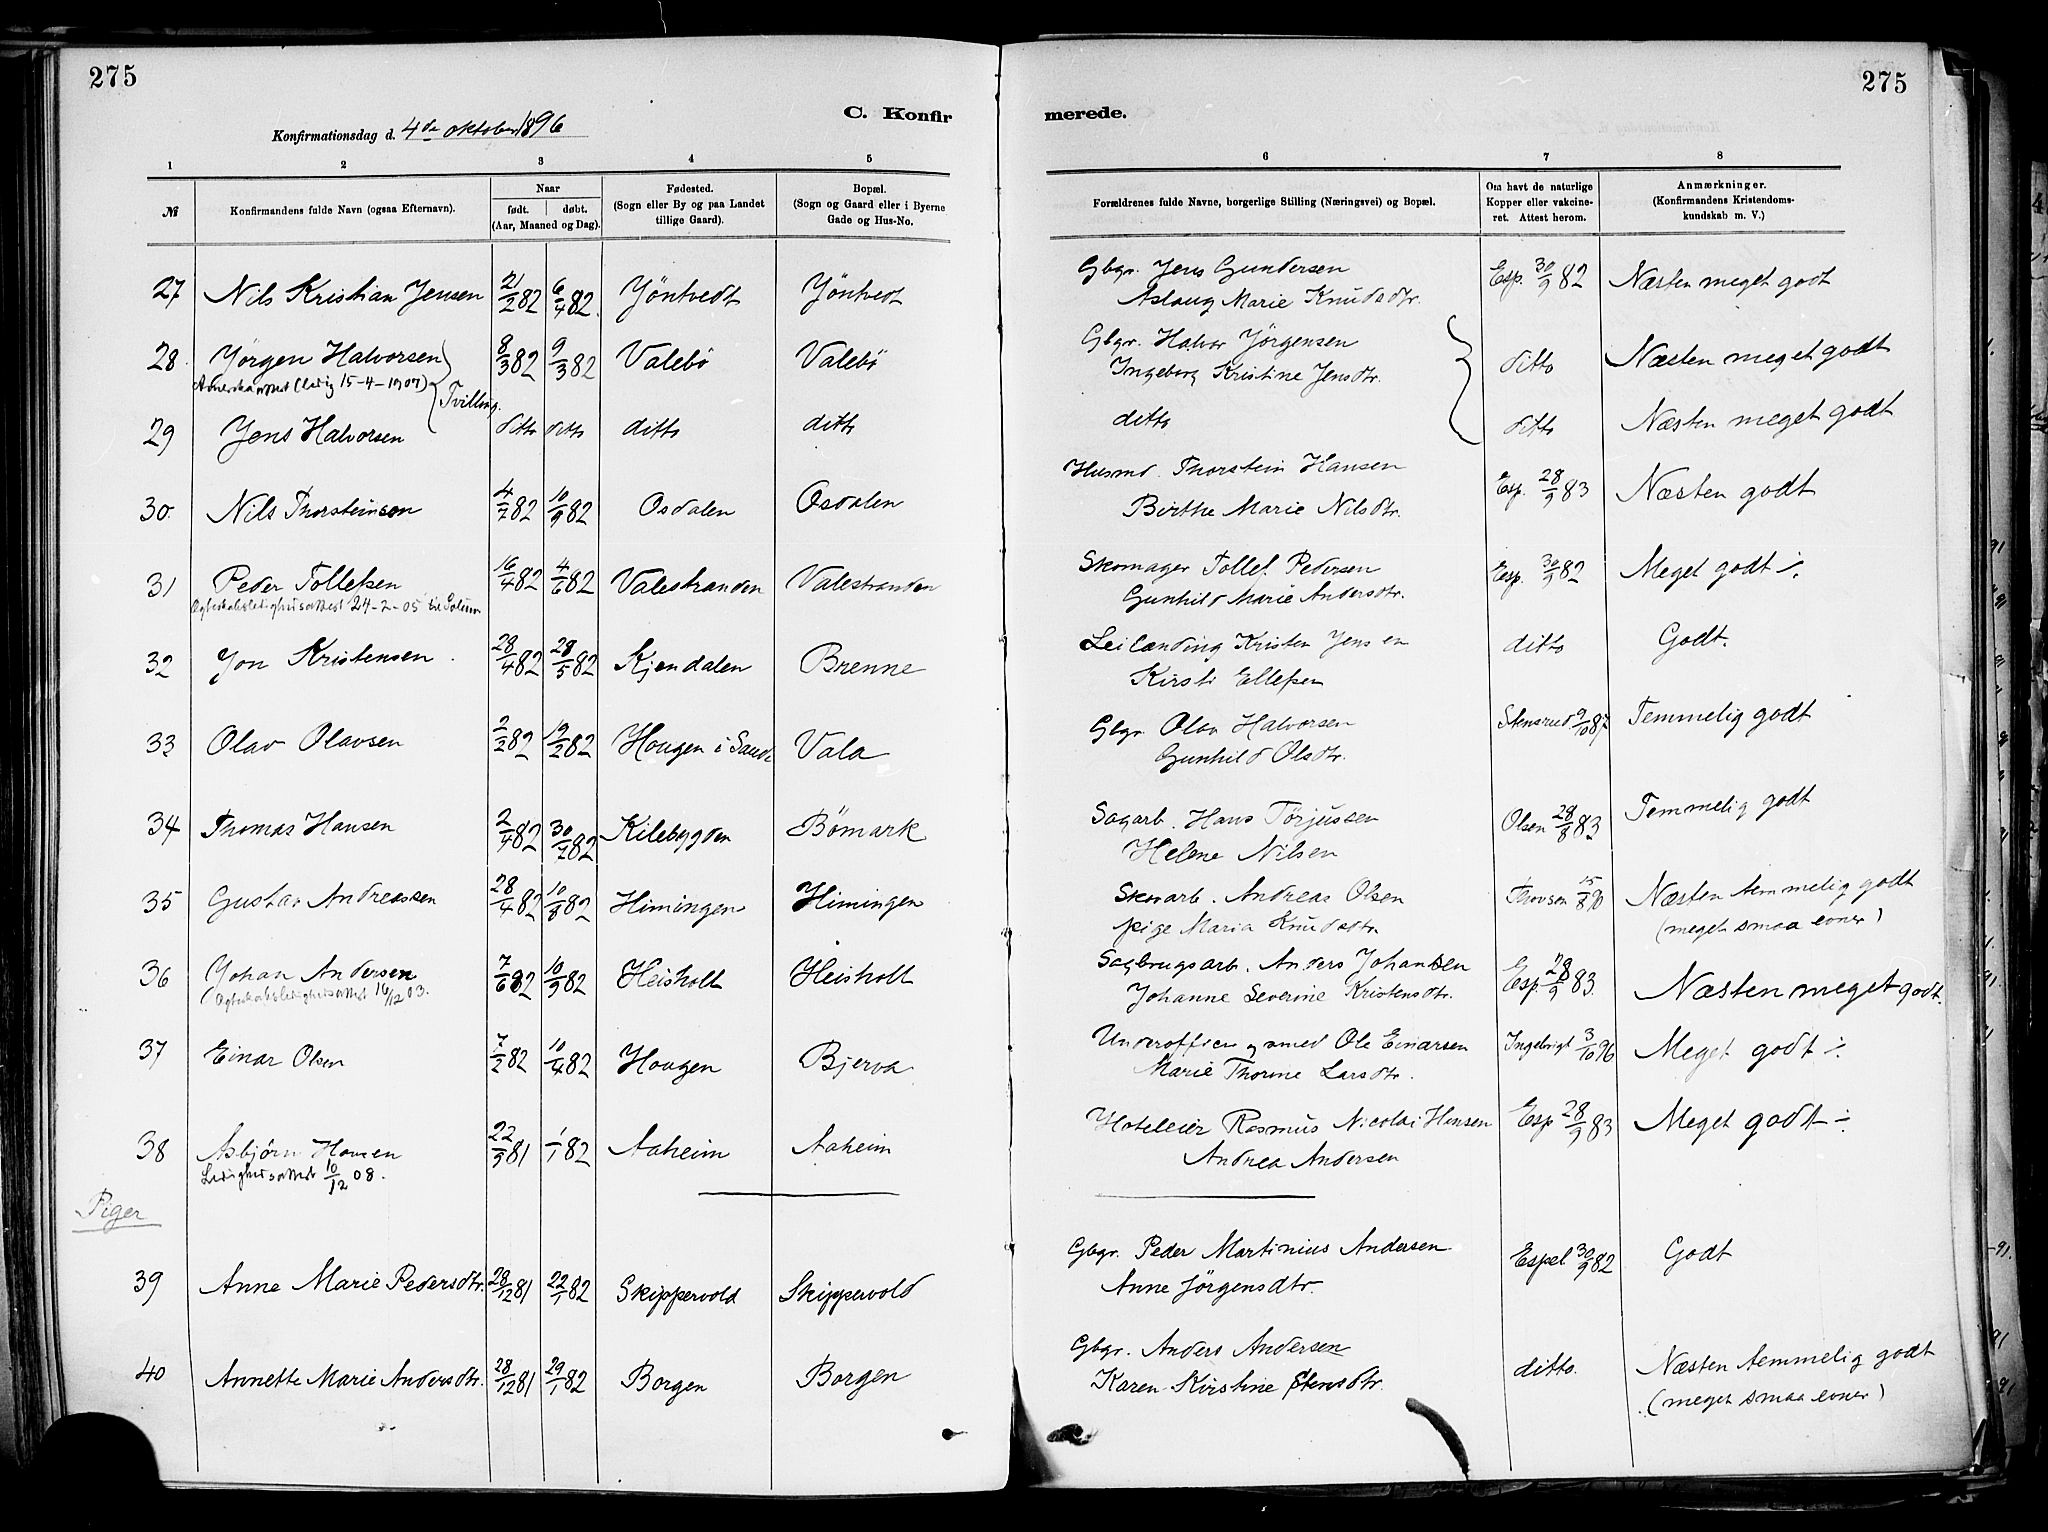 275
275
C. Konfirmerede.
Konfirmationsdag d. 4de oktober 1896
1 2 3 4 5 6 7 8
№ Konfirmandens fulde Navn (ogsaa Efternavn). Naar født. døbt. (Aar, Maaned og Dag). Fødested. (Sogn eller By og paa Landet tillige Gaard). Bopæl. (Sogn og Gaard eller i Byerne Gade og Hus-No. Forældrenes fulde Navne, borgerlige Stilling (Næringsvei) og Bopæl. Om havt de naturlige Kopper eller vakcineret. Attest herom. Anmærkninger. (Konfirmandens Kristendomskundskab m. V.)
27 Nils Kristian Jensen 21/2 82 6/4 82. Jöntvedt Jöntvedt Gbgr. Jens Gundersen Esp. 30/9 82 Næsten meget godt
Aslaug Marie Knudsdtr.
28. Jörgen Halvorsen 8/3 82 9/3 82 Valebö Valebö Gbgr. Halvor Jörgensen ditto Næsten meget godt
Amerikaattest (ledig 15-4-1907) Tvilling. Ingeborg Kristine Jensdtr.
29 Jens Halvorsen ditto ditto ditto ditto ditto ditto Næsten meget godt
30. Nils Thorsteinson 4/7 82 10/9 82 Osdalen Osdalen Husmd. Thorstein Hansen Esp. 28/9 83 Næsten godt
Birthe Marie Nilsdtr.
31 Peder Tollefsen 16/4 82 4/6 82 Valestranden Valestranden Skomager Tollef Pedersen Esp. 30/9 82 Meget godt ÷.
Ægteskabsledighedsattest 24-2-05 til Solum Gunhild Marie Andersdtr.
32 Jon Kristensen. 28/4 82 28/5 82 Kjendalen Brenne Leilænding Kristen Jensen ditto Godt.
Kirsti Ellefsen
33 Olav Olavsen 2/2 82 19/2 82 Hougen i Sande Vala Gbgr. Olav Halvorsen Stensrud 9/10 87 Temmelig godt
Gunhild Olsdtr.
34 Thomas Hansen 2/4 82 30/7 82 Kilebygden Bömark Sagarb. Hans Törjussen Olsen 28/8 83 Temmelig godt
Helene Nilsen
35 Gustav Andreassen 28/4 82 10/8 82 Himingen Himingen Skovarb. Andreas Olsen 15/8 90 Næsten temmelig godt
pige Maria Knudsdtr. (meget smaa evner)
36 Johan Andersen 7/6 82 10/9 82 Heisholt Heisholt Sagbrugsarb. Anders Johansen Esp. 28/9 83. Næsten meget godt.
(Ægteskabsledighedsattest 16/12 03. Johanne Severine Kristensdtr.
37 Einar Olsen 7/2 82 10/4 82 Hougen Bjerva Underofficer og smed Ole Einarsen Ingebrigt 3/10 96 Meget godt ÷.
Marie Thorine Larsdtr.
38 Asbjörn Hansen 22/9 81 1/1 82 Aaheim Aaheim Hoteleier Rasmus Nicolai Hansen Esp 28/9 83 Meget godt ÷
Ledighedsattest 10/12 08. Andrea Andersen
Piger
39 Anne Marie Pedersdtr. 28/12 81 22/1 82 Skippervold Skippervold Gbgr. Peder Martinius Andersen Espel 30/9 82 Godt
Anne Jörgensdtr.
40 Annette Marie Andersdtr. 28/12 81 29/1 82 Borgen Borgen Gbgr. Anders Andersen ditto. Næsten temmelig godt
Karen Kirstine Stensdtr. (meget smaa evner)